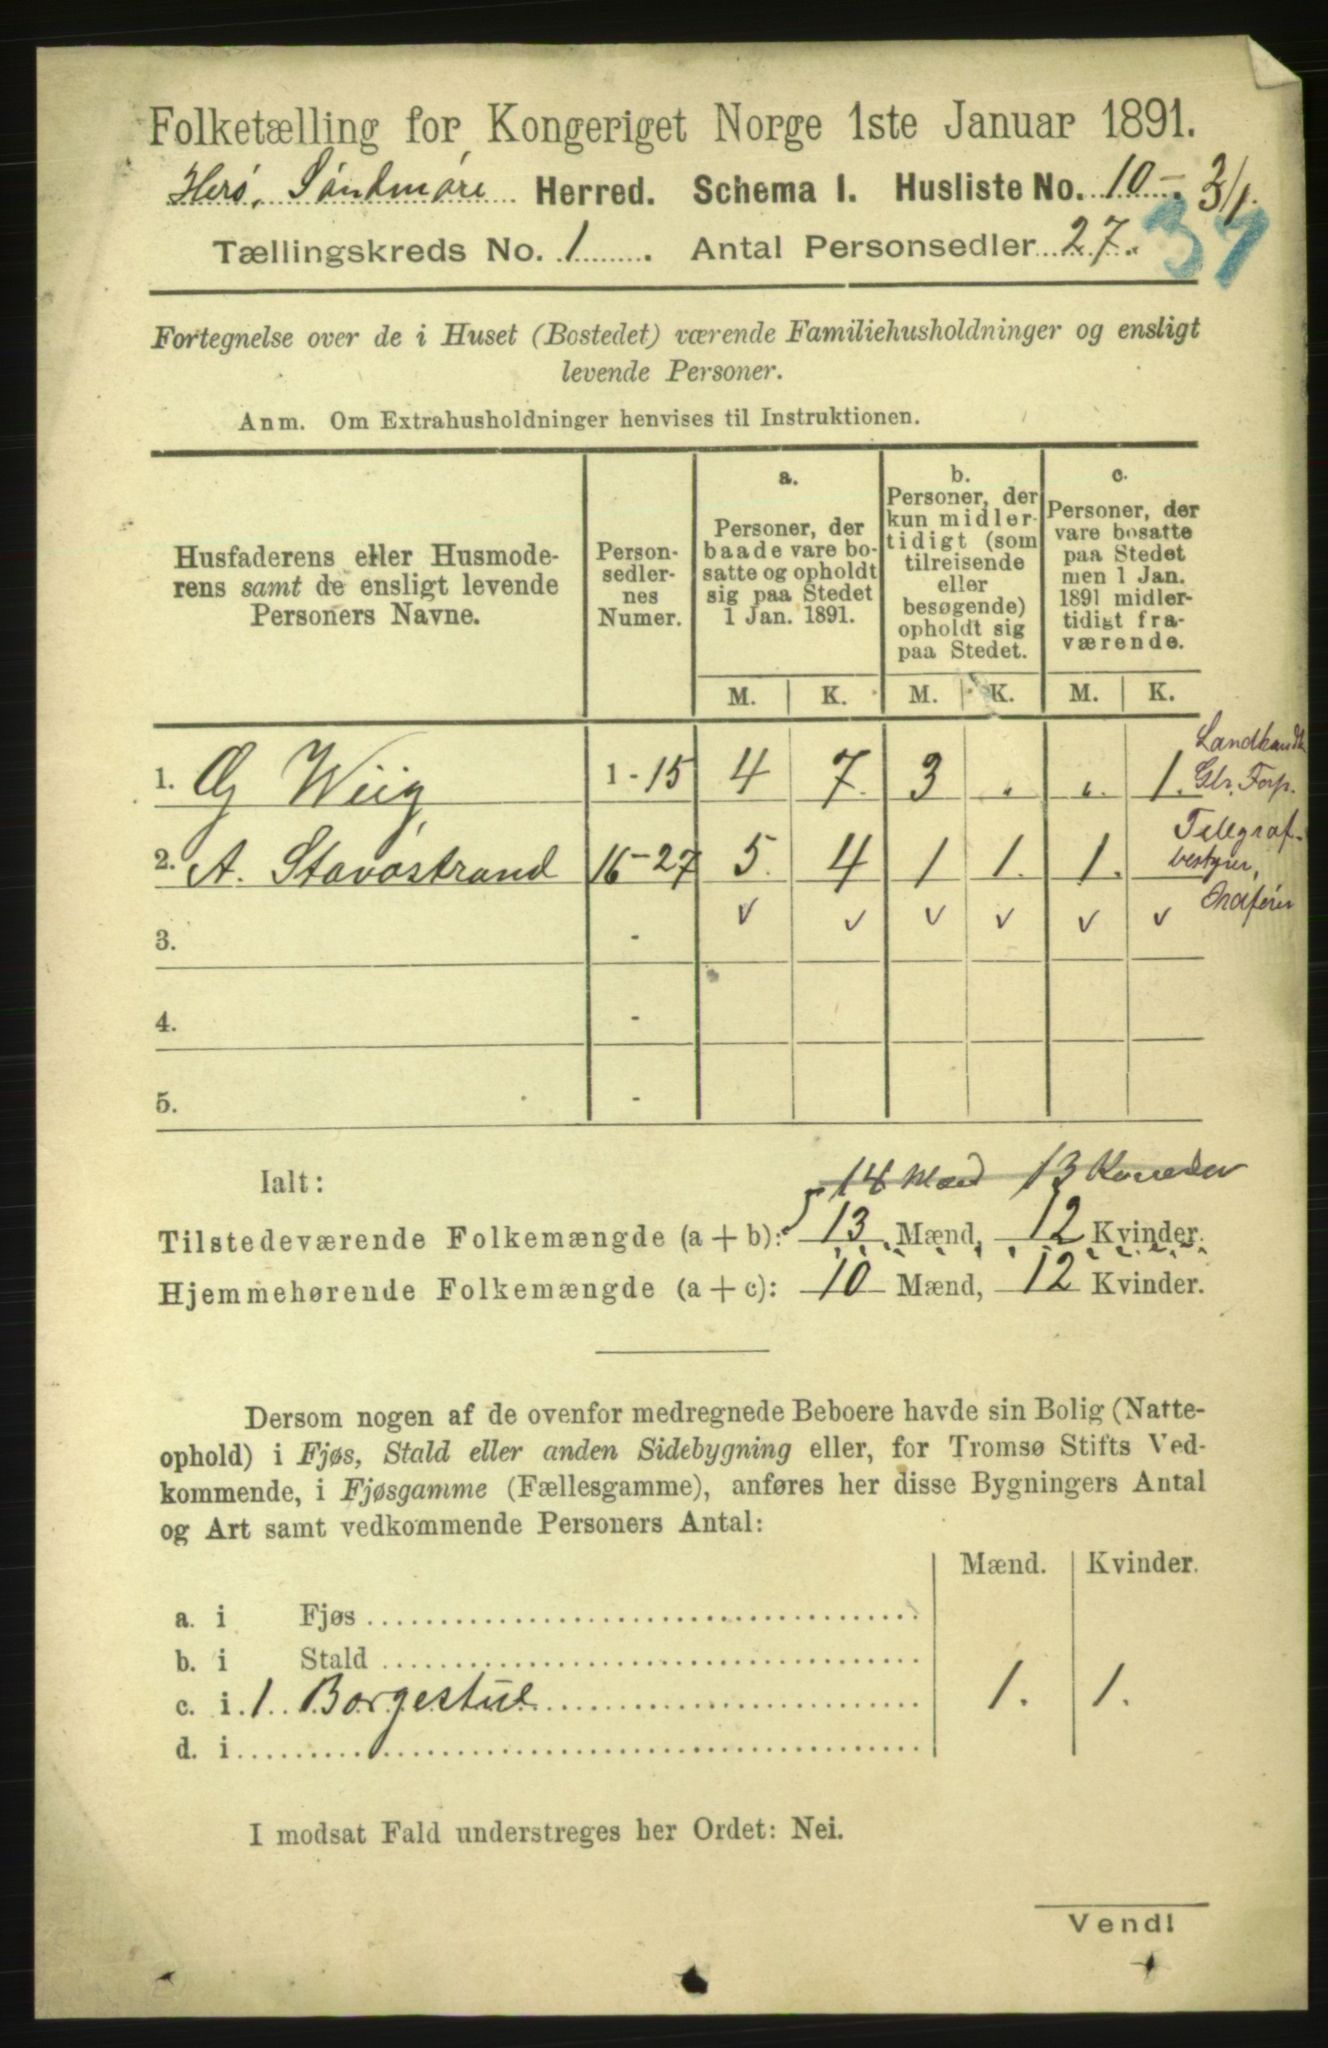 Folketælling for Kongeriget Norge 1ste Januar 1891.
Herö, Söndmöre Herred. Schema I. Husliste No. 10 - 3/1.
Tællingskreds No. 1. Antal Personsedler 27. 37
Fortegnelse over de i Huset (Bostedet) værende Familiehusholdninger og ensligt
levende Personer.
Anm. Om Extrahusholdninger henvises til Instruktionen.
Husfaderens eller Husmode-
rens samt de ensligt levende
Personers Navne.
Person-
sedler-
nes
Numer.
a.
Personer, der
baade vare bo-
satte og opholdt
sig paa Stedet
1 Jan. 1891.
b.
Personer, der
kun midler-
tidigt (som
tilreisende
eller
besøgende)
opholdt sig
paa Stedet.
c.
Personer, der
vare bosatte
paa Stedet
men 1 Jan.
1891 midler-
tidigt fra-
værende.
M. K. M. K. M. K.
1. Wiig 1 - 15 4 7. 3 . . 1.
2. A. Stavostrand 16 - 27 5. 4 1 1. 1.
Telegraf-
bestyrer,
3. - ✓ ✓ ✓ ✓ ✓ ✓
4. -
5. -
Ialt: 14 Mænd 13 Kvinder
Tilstedeværende Folkemængde (a + b): 13 Mænd, 12 Kvinder.
Hjemmehørende Folkemængde (a + c): 10 Mænd, 12 Kvinder.
Dersom nogen af de ovenfor medregnede Beboere havde sin Bolig (Natte-
ophold) i Fjøs, Stald eller anden Sidebygning eller, for Tromsø Stifts Ved-
kommende, i Fjøsgamme (Fællesgamme), anføres her disse Bygningers Antal
og Art samt vedkommende Personers Antal:
Mænd. Kvinder.
a. i Fjøs
b. i Stald
c. i 1 Borgestue 1. 1.
d. i
I modsat Fald understreges her Ordet: Nei.
Vend!